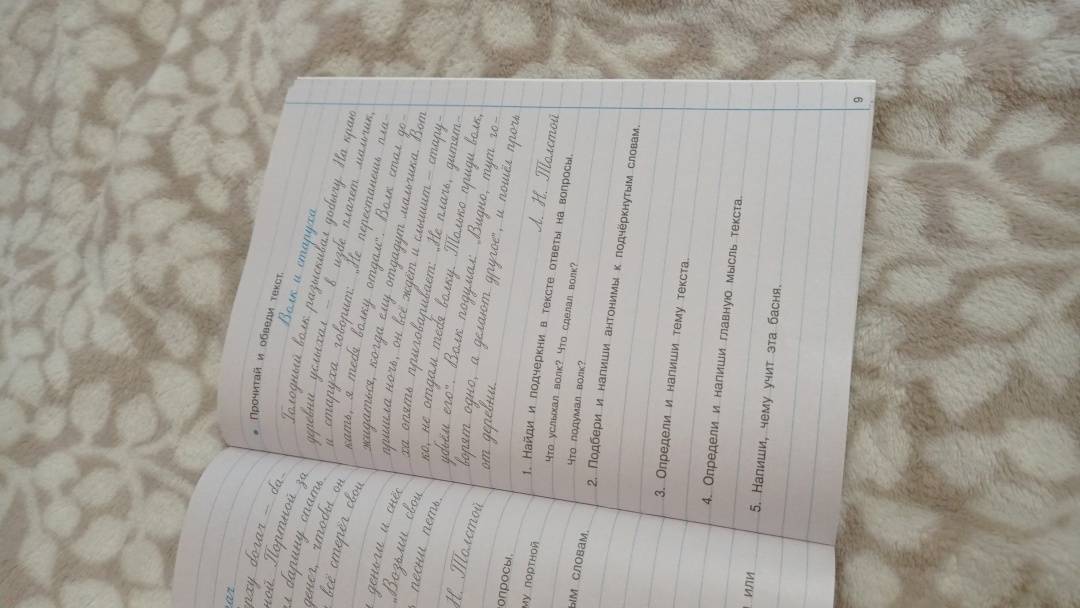 рач
рху богач – ба-
ной. Портной за
л барину спать.
денег, чтобы он
всё стерёг свои
деньги и снёс
„Возьми свои
песни петь.
Н. Толстой
опросы.
му портной
ым словам.
или
• Прочитай и обведи текст.
Волк и старуха
Голодный волк разыскивал добычу. На краю
деревни услыхал – в избе плачет мальчик,
и старуха говорит: „Не перестанешь пла-
кать, я тебя волку отдам“. Волк стал до-
жидаться, когда ему отдадут мальчика. Вот
пришла ночь, он всё ждёт и слышит – стару-
ха опять приговаривает: „Не плачь, дитят-
ко, не отдам тебя волку. Только приди волк,
убьём его“. Волк подумал: „Видно, тут го-
ворят одно, а делают другое“, и пошёл прочь
от деревни.
Л. Н. Толстой
1. Найди и подчеркни в тексте ответы на вопросы.
Что услыхал волк? Что сделал волк?
Что подумал волк?
2. Подбери и напиши антонимы к подчёркнутым словам.
3. Определи и напиши тему текста.
4. Определи и напиши главную мысль текста.
5. Напиши, чему учит эта басня.
9